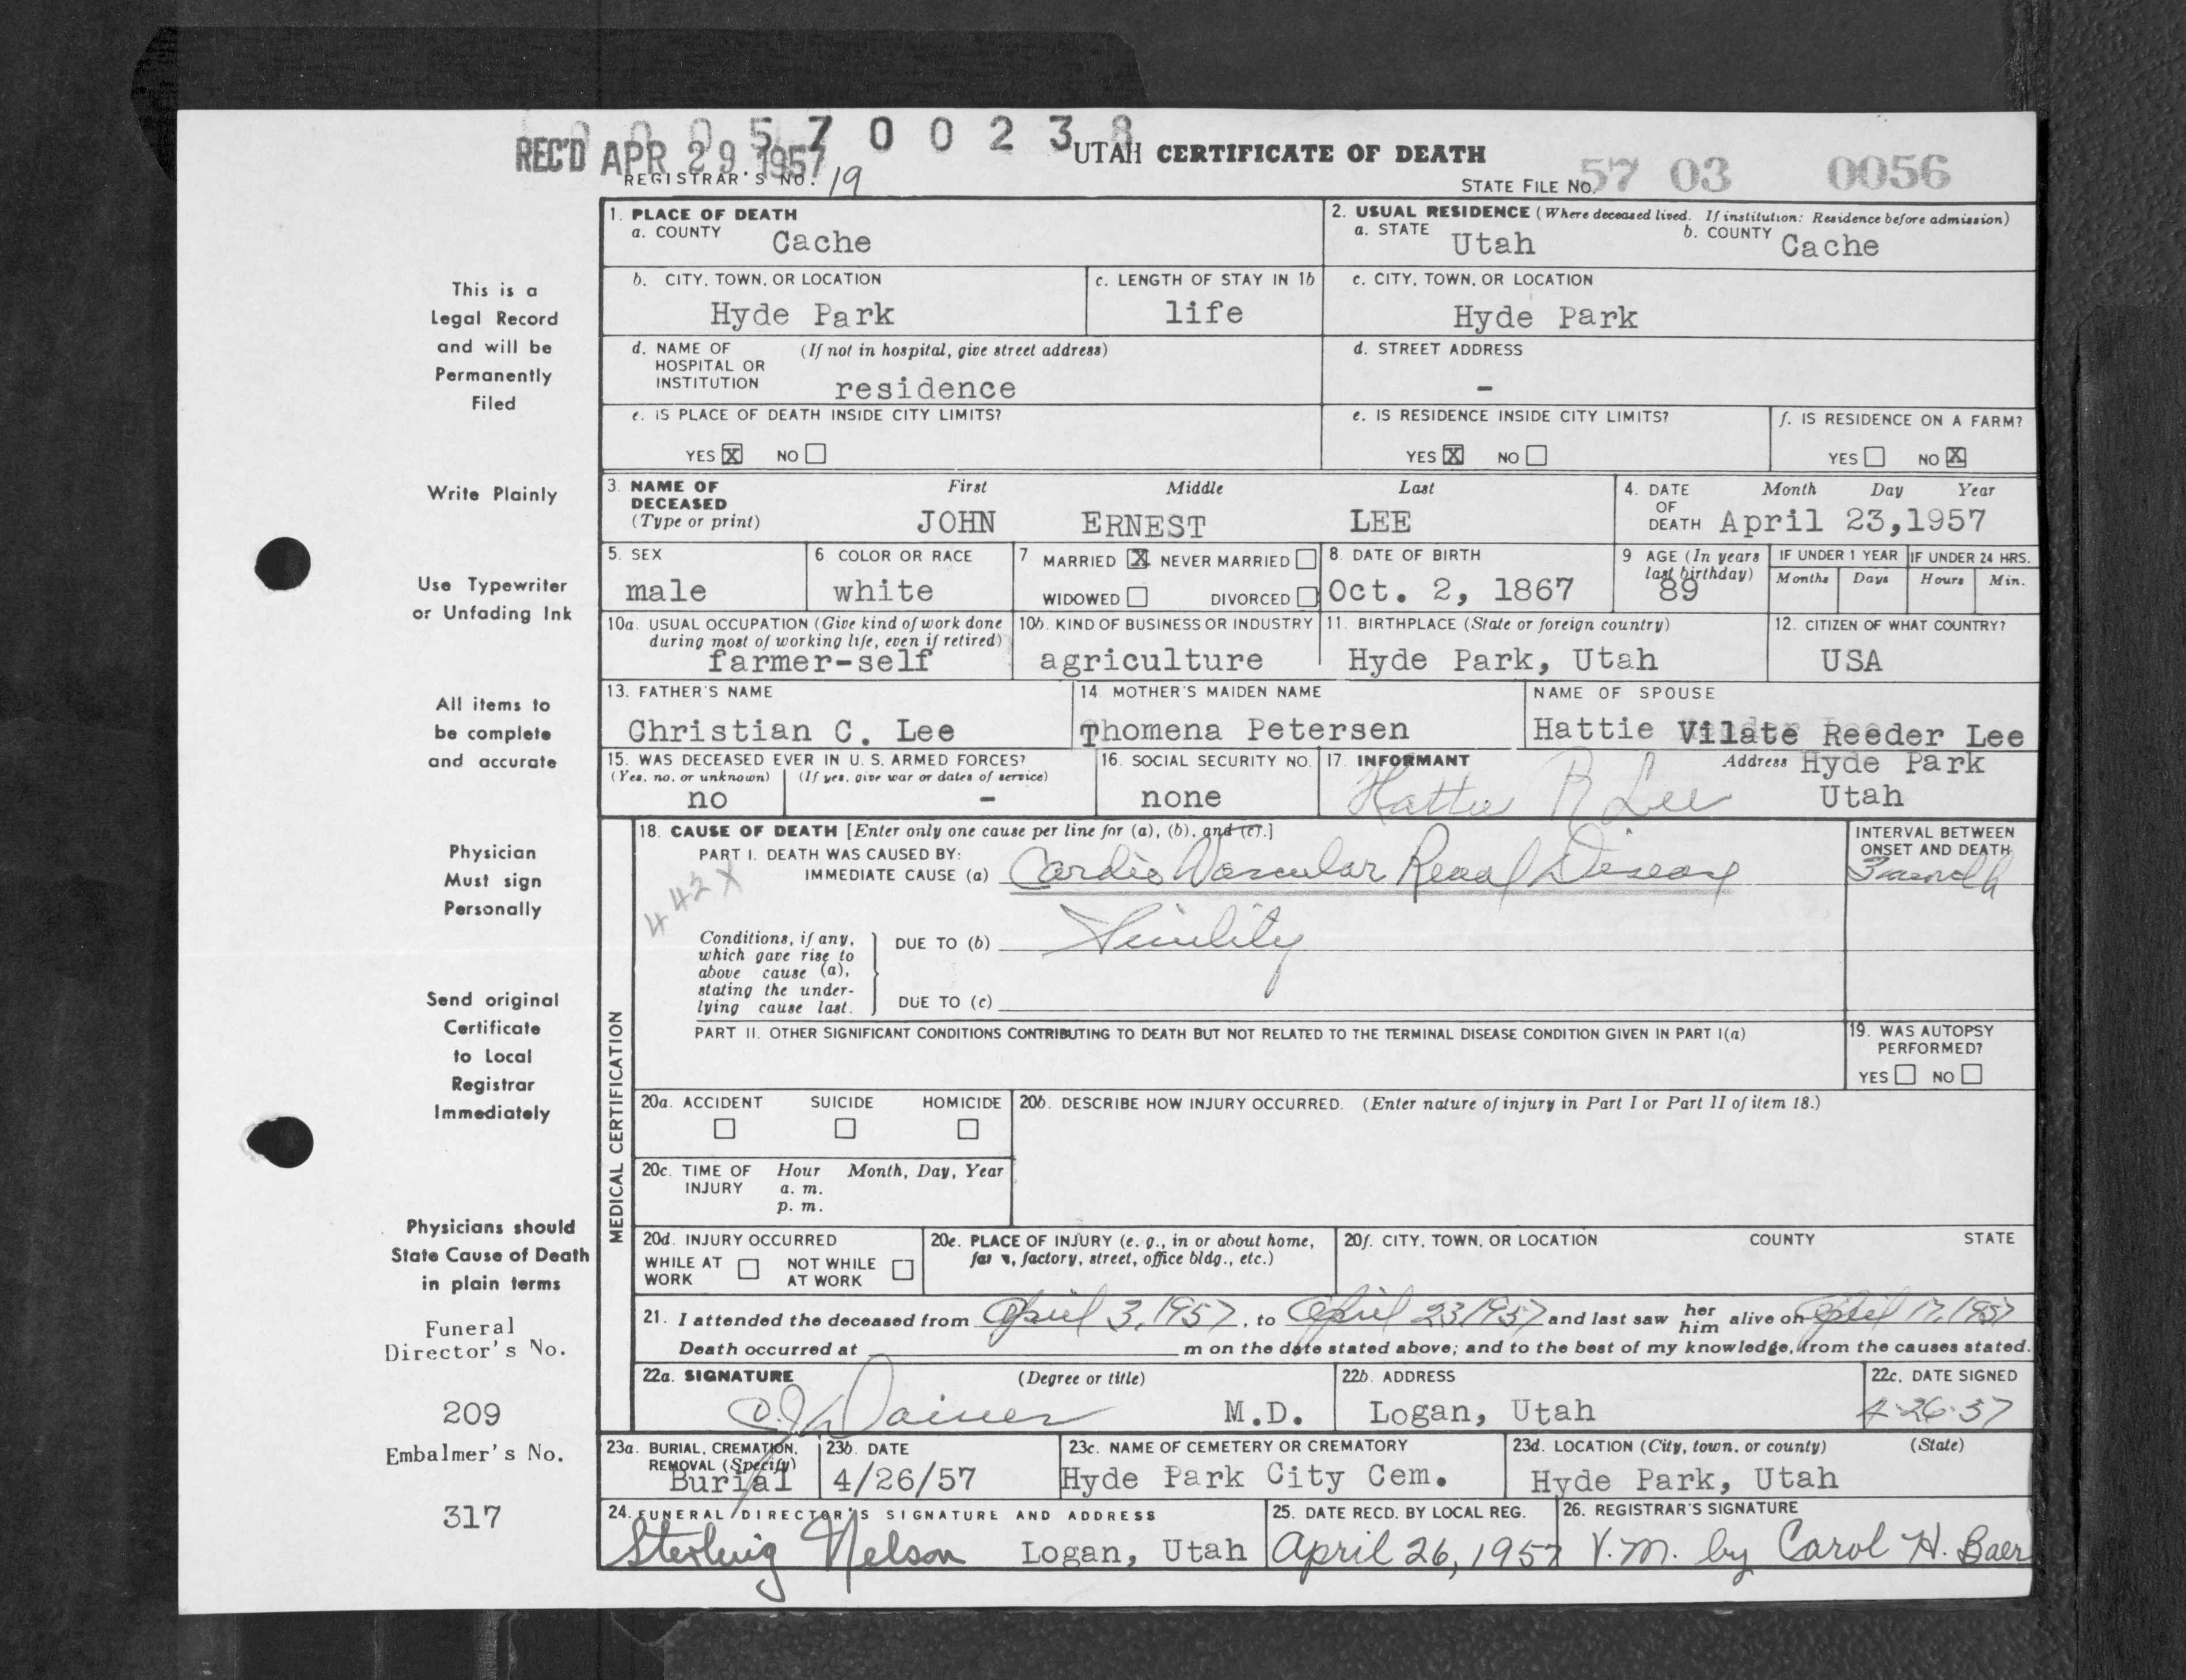 0 0 0 5 7 0 0 2 3 8
REC'D APR 29 1957
UTAH CERTIFICATE OF DEATH
REGISTRAR'S NO. 19
STATE FILE NO. 57 03 0056
This is a
Legal Record
and will be
Permanently
Filed
Write Plainly
Use Typewriter
or Unfading Ink
All items to
be complete
and accurate
Physician
Must sign
Personally
Send original
Certificate
to Local
Registrar
Immediately
Physicians should
State Cause of Death
in plain terms
Funeral
Director's No.
209
Embalmer's No.
317
1. PLACE OF DEATH
a. COUNTY Cache
2. USUAL RESIDENCE (Where deceased lived. If institution: Residence before admission)
a. STATE Utah b. COUNTY Cache
b. CITY, TOWN, OR LOCATION
Hyde Park
c. LENGTH OF STAY IN 1b
life
c. CITY, TOWN, OR LOCATION
Hyde Park
d. NAME OF (If not in hospital, give street address)
HOSPITAL OR
INSTITUTION residence
d. STREET ADDRESS
-
e. IS PLACE OF DEATH INSIDE CITY LIMITS?
YES X NO
e. IS RESIDENCE INSIDE CITY LIMITS?
YES X NO
f. IS RESIDENCE ON A FARM?
YES NO X
3. NAME OF First Middle Last
DECEASED
(Type or print) JOHN ERNEST LEE
4. DATE Month Day Year
OF
DEATH April 23,1957
5. SEX
male
6 COLOR OR RACE
white
7 MARRIED X NEVER MARRIED
WIDOWED DIVORCED
8. DATE OF BIRTH
Oct. 2, 1867
9 AGE (In years
last birthday)
89
IF UNDER 1 YEAR
Months Days
IF UNDER 24 HRS.
Hours Min.
10a. USUAL OCCUPATION (Give kind of work done
during most of working life, even if retired)
farmer-self
10b. KIND OF BUSINESS OR INDUSTRY
agriculture
11. BIRTHPLACE (State or foreign country)
Hyde Park, Utah
12. CITIZEN OF WHAT COUNTRY?
USA
13. FATHER'S NAME
Christian C. Lee
14. MOTHER'S MAIDEN NAME
Thomena Petersen
NAME OF SPOUSE
Hattie Vilate Reeder Lee
15. WAS DECEASED EVER IN U. S. ARMED FORCES?
(Yes, no, or unknown) (If yes, give war or dates of service)
no -
16. SOCIAL SECURITY NO.
none
17. INFORMANT Address Hyde Park
Hattie R Lee Utah
MEDICAL CERTIFICATION
18. CAUSE OF DEATH [Enter only one cause per line for (a), (b), and (c).]
PART I. DEATH WAS CAUSED BY:
IMMEDIATE CAUSE (a) Cardio Vascular Renal Disease
442X
INTERVAL BETWEEN
ONSET AND DEATH
Conditions, if any,
which gave rise to
above cause (a),
stating the under-
lying cause last.
DUE TO (b) Senility
DUE TO (c)
PART II. OTHER SIGNIFICANT CONDITIONS CONTRIBUTING TO DEATH BUT NOT RELATED TO THE TERMINAL DISEASE CONDITION GIVEN IN PART I(a)
19. WAS AUTOPSY
PERFORMED?
YES NO
20a. ACCIDENT SUICIDE HOMICIDE
20b. DESCRIBE HOW INJURY OCCURRED. (Enter nature of injury in Part I or Part II of item 18.)
20c. TIME OF Hour Month, Day, Year
INJURY a. m.
p. m.
20d. INJURY OCCURRED
WHILE AT NOT WHILE
WORK AT WORK
20e. PLACE OF INJURY (e. g., in or about home,
farm, factory, street, office bldg., etc.)
20f. CITY, TOWN, OR LOCATION COUNTY STATE
21. I attended the deceased from April 3, 1957, to April 23 1957 and last saw her him alive on April 17, 1957
Death occurred at m on the date stated above; and to the best of my knowledge, from the causes stated.
22a. SIGNATURE (Degree or title)
M.D.
22b. ADDRESS
Logan, Utah
22c. DATE SIGNED
4-26-57
23a. BURIAL, CREMATION,
REMOVAL (Specify)
Burial
23b. DATE
4/26/57
23c. NAME OF CEMETERY OR CREMATORY
Hyde Park City Cem.
23d. LOCATION (City, town, or county) (State)
Hyde Park, Utah
24. FUNERAL DIRECTOR'S SIGNATURE AND ADDRESS
Sterling Nelson Logan, Utah
25. DATE RECD. BY LOCAL REG.
April 26, 1957
26. REGISTRAR'S SIGNATURE
V.M. by Carol H. Baer